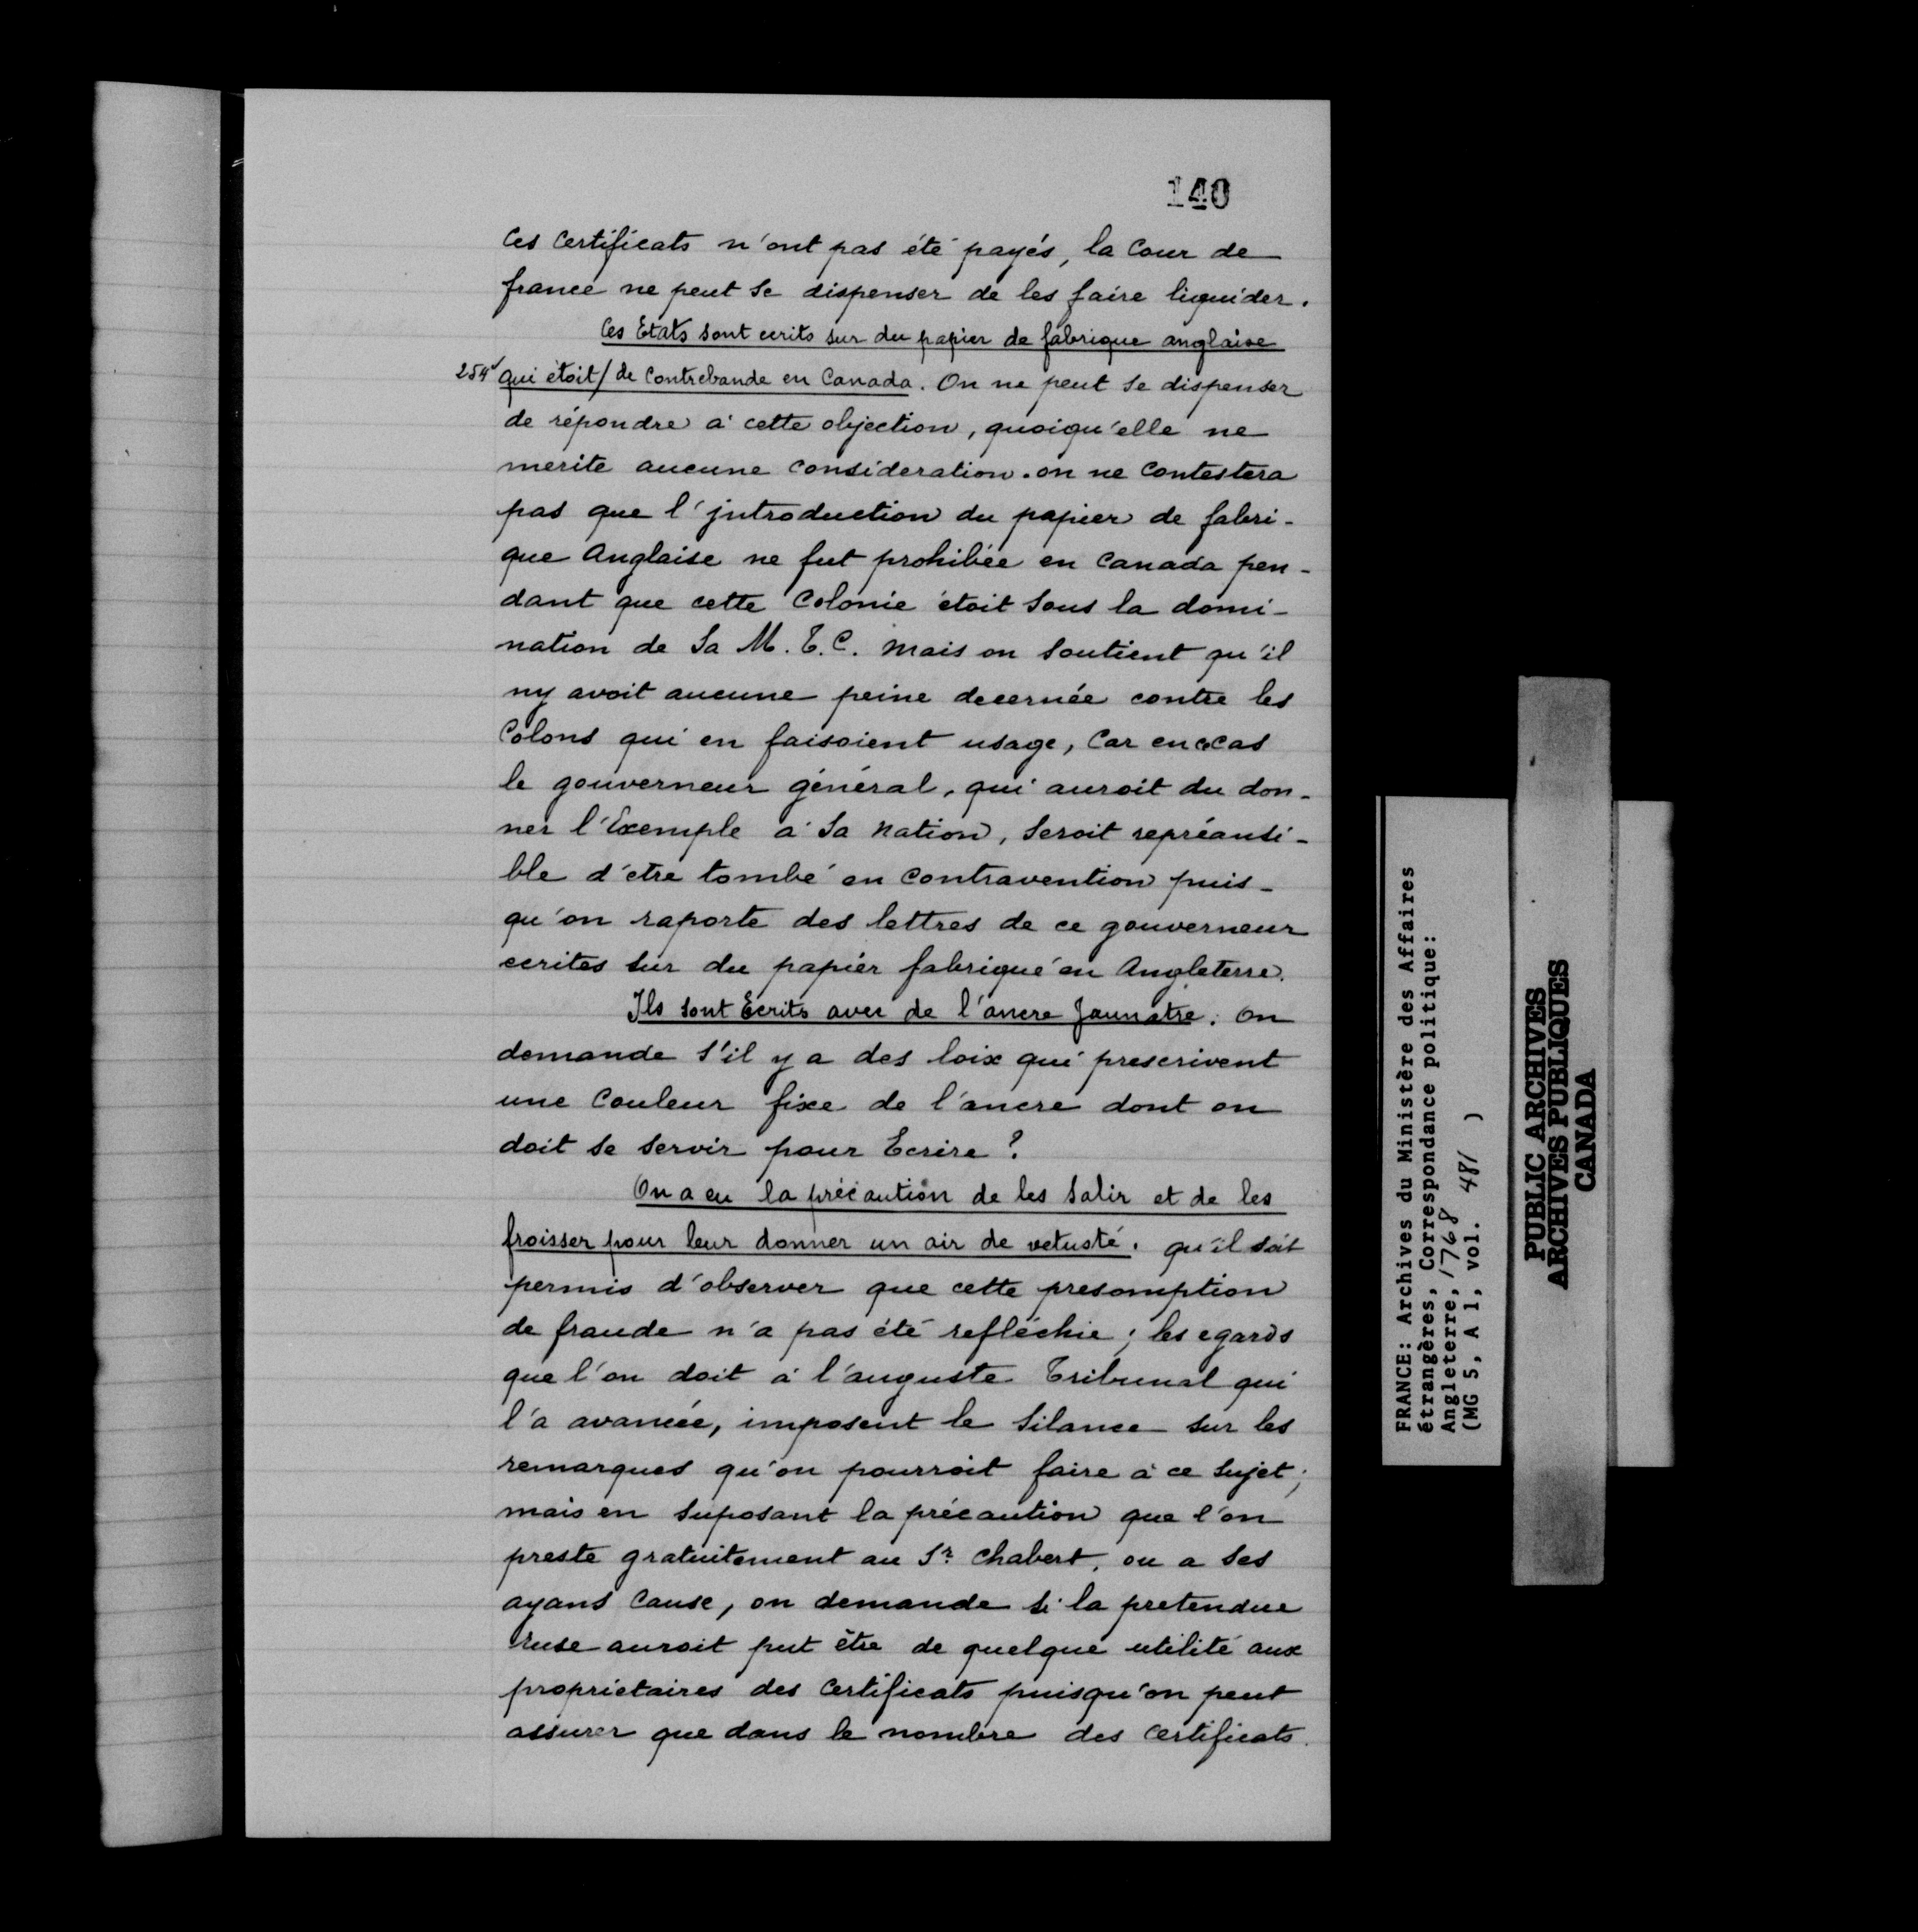 140
Ces Certificats n'ont pas été payés, la Cour de
france ne peut se dispenser de les faire liquider.
Ces Etats sont ecrits sur du papier de fabrique anglaise
254v qui étoit / de Contrebande en Canada. On ne peut se dispenser
de répondre à cette objection, quoiqu'elle ne
merite aucune consideration. on ne Contestera
pas que l'jntroduction du papier de fabri-
que Anglaise ne fut prohibée en Canada pen-
dant que cette Colonie étoit sous la domi-
nation de Sa M. T. C. mais on soutient qu'il
ny avoit aucune peine decernée contre les
Colons qui en faisoient usage, Car en ce cas
le gouverneur général, qui auroit du don-
ner l'Exemple a Sa Nation, Seroit repréansi-
ble d'etre tombé en Contravention puis-
qu'on raporte des lettres de ce gouverneur
ecrites sur du papier fabriqué en Angleterre.
Ils sont Ecrits avec de l'ancre Jaunatre. On
demande s'il y a des loix qui prescrivent
une Couleur fixe de l'ancre dont on
doit se servir pour Ecrire ?
On a eu la précaution de les Salir et de les
froisser pour leur donner un air de vetusté. qu'il soit
permis d'observer que cette presomption
de fraude n'a pas été refléchie ; les egards
que l'on doit à l'auguste Tribunal qui
l'a avancée, imposent le Silance sur les
remarques qu'on pourroit faire à ce Sujet ;
mais en suposant la précaution que l'on
preste gratuitement au Sr. Chabert, ou a ses
ayans Cause, on demande si la pretendue
ruse auroit put être de quelque utilité aux
proprietaires des Certificats puisqu'on peut
assurer que dans le nombre des Certificats.
FRANCE: Archives du Ministère des Affaires
étrangères, Correspondance politique:
Angleterre, 1768
(MG 5, A 1, vol. 481 )
PUBLIC ARCHIVES
ARCHIVES PUBLIQUES
CANADA